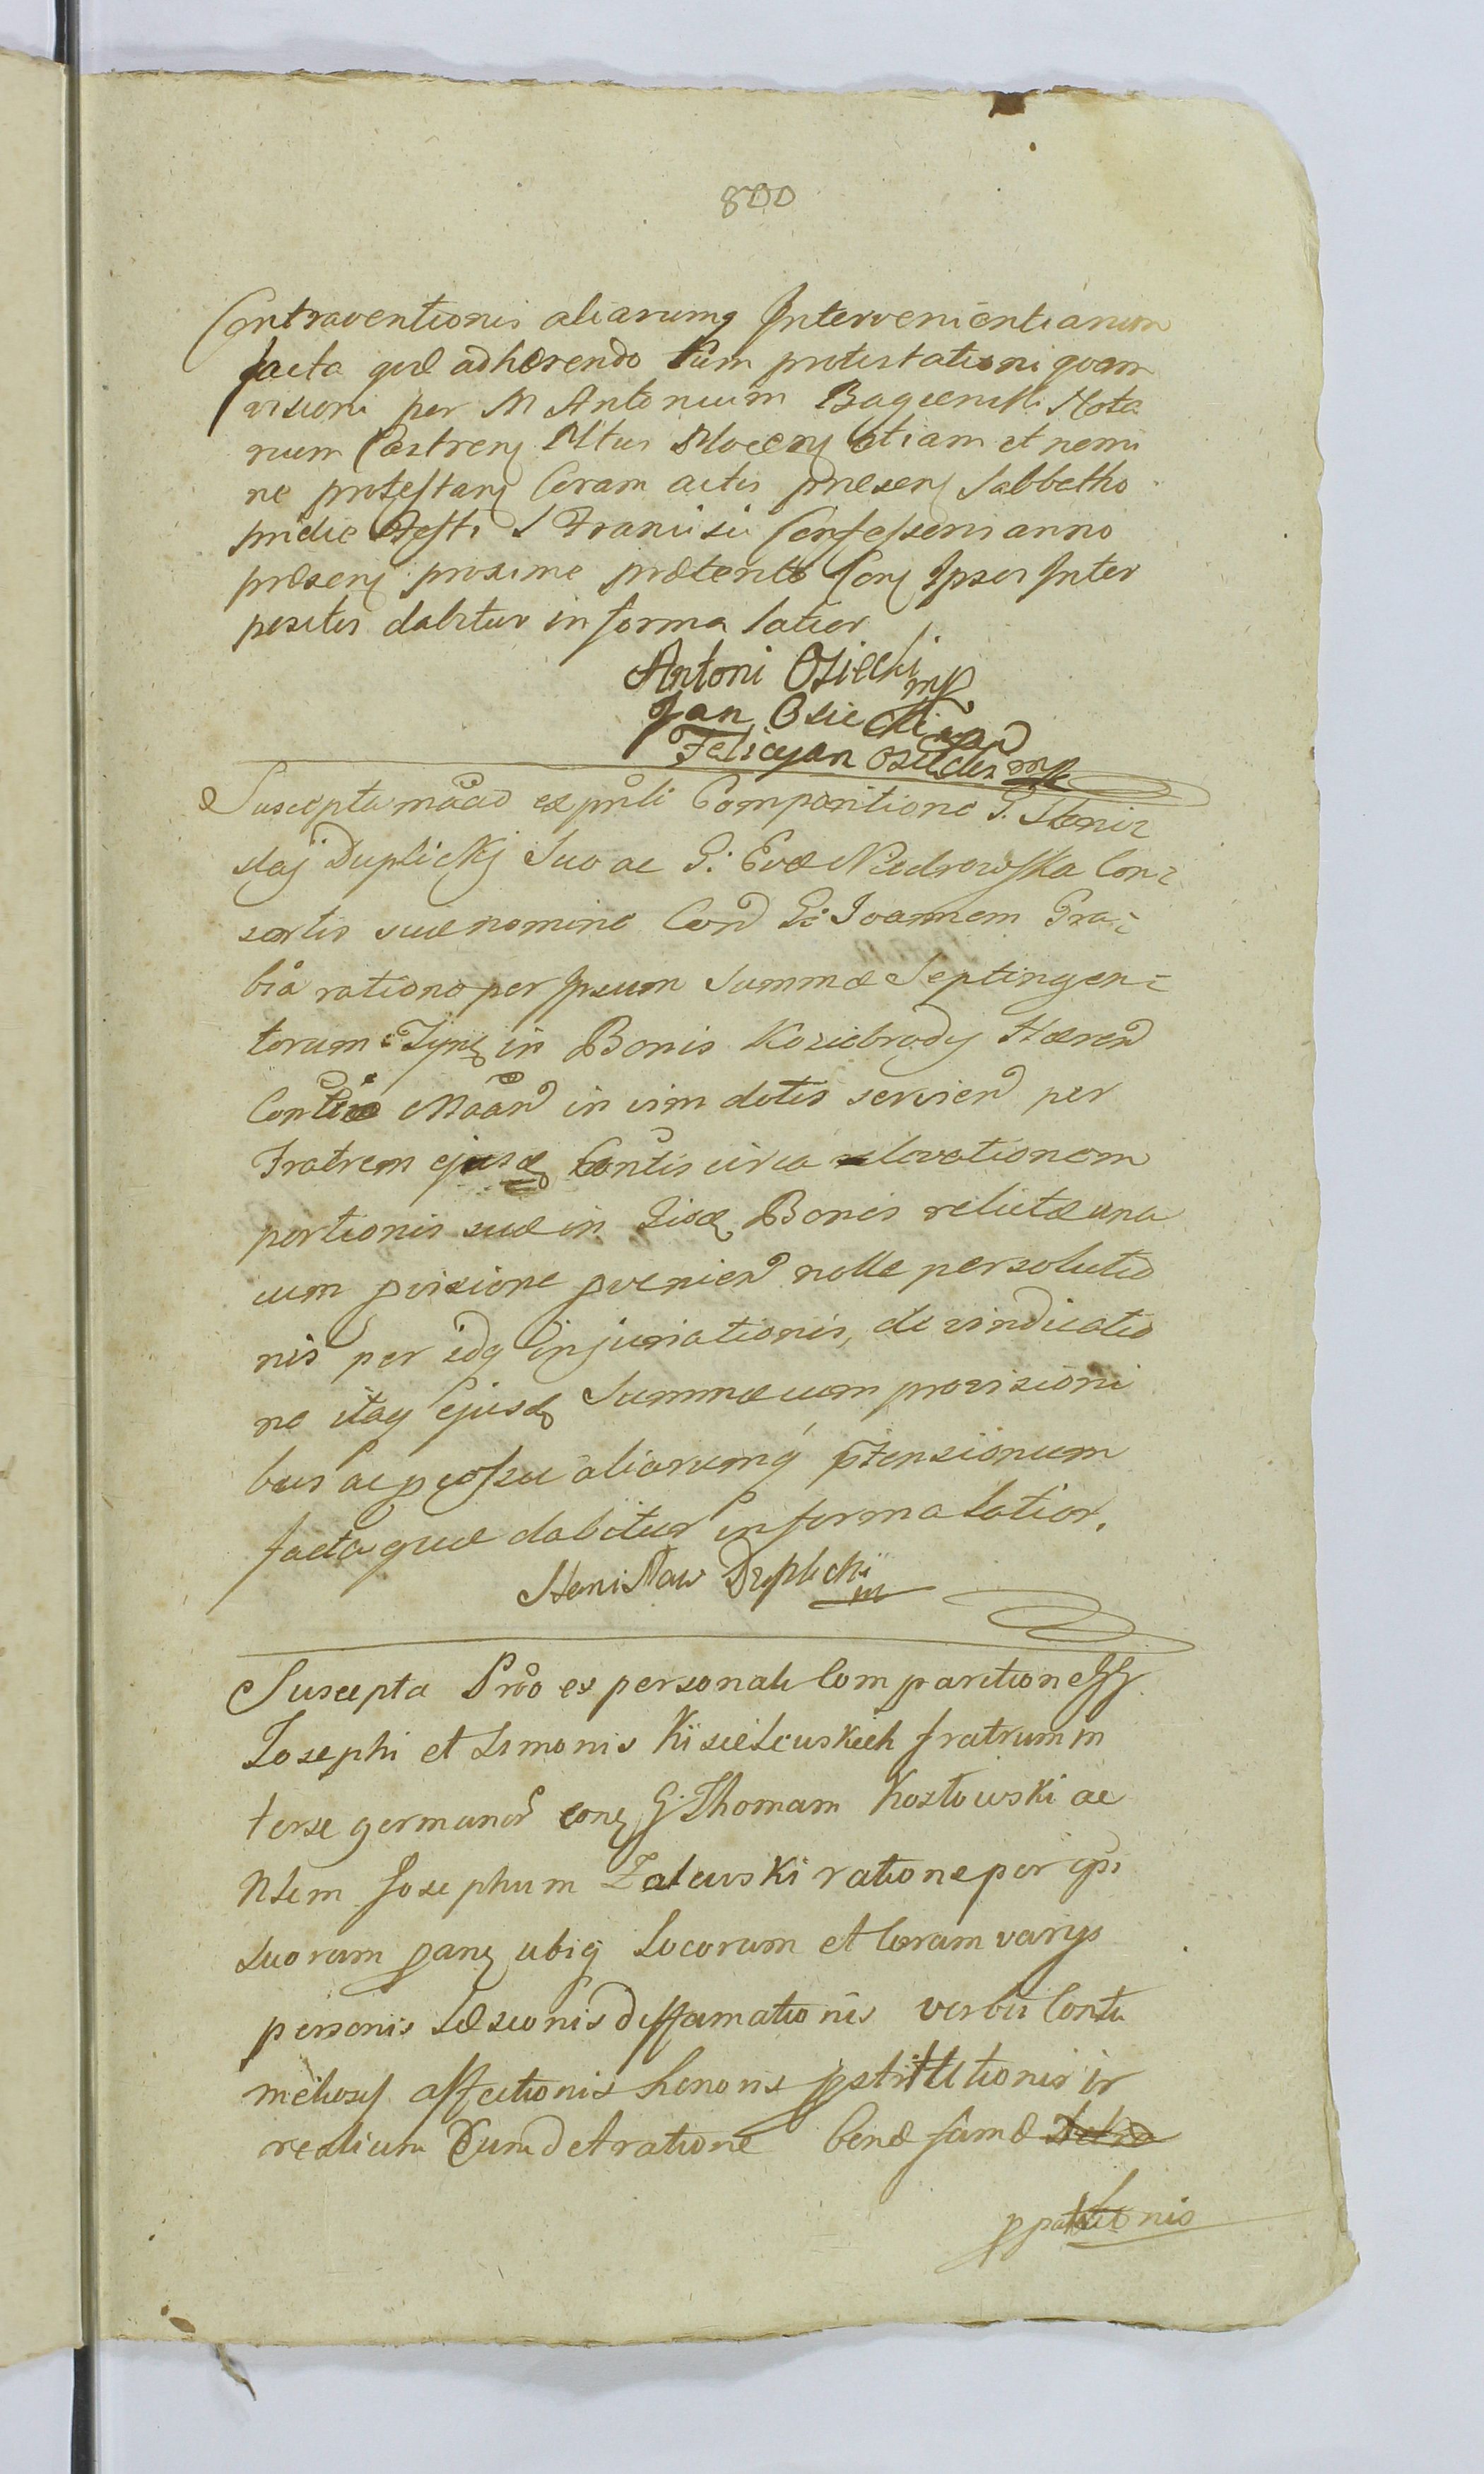 800
Contraventionis aliarumq Intervenientiarum
facta quæ adhærendo tum protestationi quam
visioni per M Antonium Bagienski Nota
rium Castrens Pltus Plocens etiam et nomi
ne protestans Coram actis præsens Sabbatho
pridie Festi S Francisci Confessoris anno
præsens proxime præterito Cons Ipsos Inter
positis dabitur in forma latior
Antoni Osiecki mp
Jan Osiecki
Felicyan Osiecki mp
Suscepta ex psnli Comparitione G. Stanis
slaj Duplickij Suo ac G. Evæ Niedrowska Con
sortis suæ nomine Con G. Joannem Gra
bia ratione per Ipsum Summæ Septingen
torum Tynf in Bonis Koziebrody Hæren
in vim dotis servien per
Fratrem ejusd Contis circa elevationem
portionis suæ in Iisd Bonis relictæ una
cum pvisione pvenien nolle persolutio
nis per idq injuriationis, de vindicatio
ne itaq Ejusd Summæ cum provisioni
bus ac aliarumq ptensionum
facta quæ dabitur in forma latior.
Stanisław Duplicki
Suscepta Prõ ex personali Comparitione GG
Josephi et Simonis Kisielewskich fratrum in
terse german cons G Thomam Kozłowski ac
Nlem Josephum Zalewski ratione per ipso
suorum pans ubiq Locorum et Coram varijs
personis Læsionis diffamationis verbis Contu
melios affectionis honoris pstitutionis ir
realium Eum detratione bonæ famæ
nis